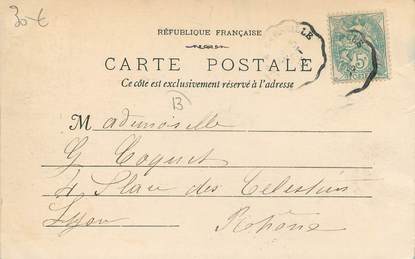 30 €
RÉPUBLIQUE FRANÇAISE
CARTE POSTALE
Ce côté est exclusivement réservé à l'adresse
B
Mademoiselle
G Coquet
4. Place des Celestins
Lyon Rhône
5